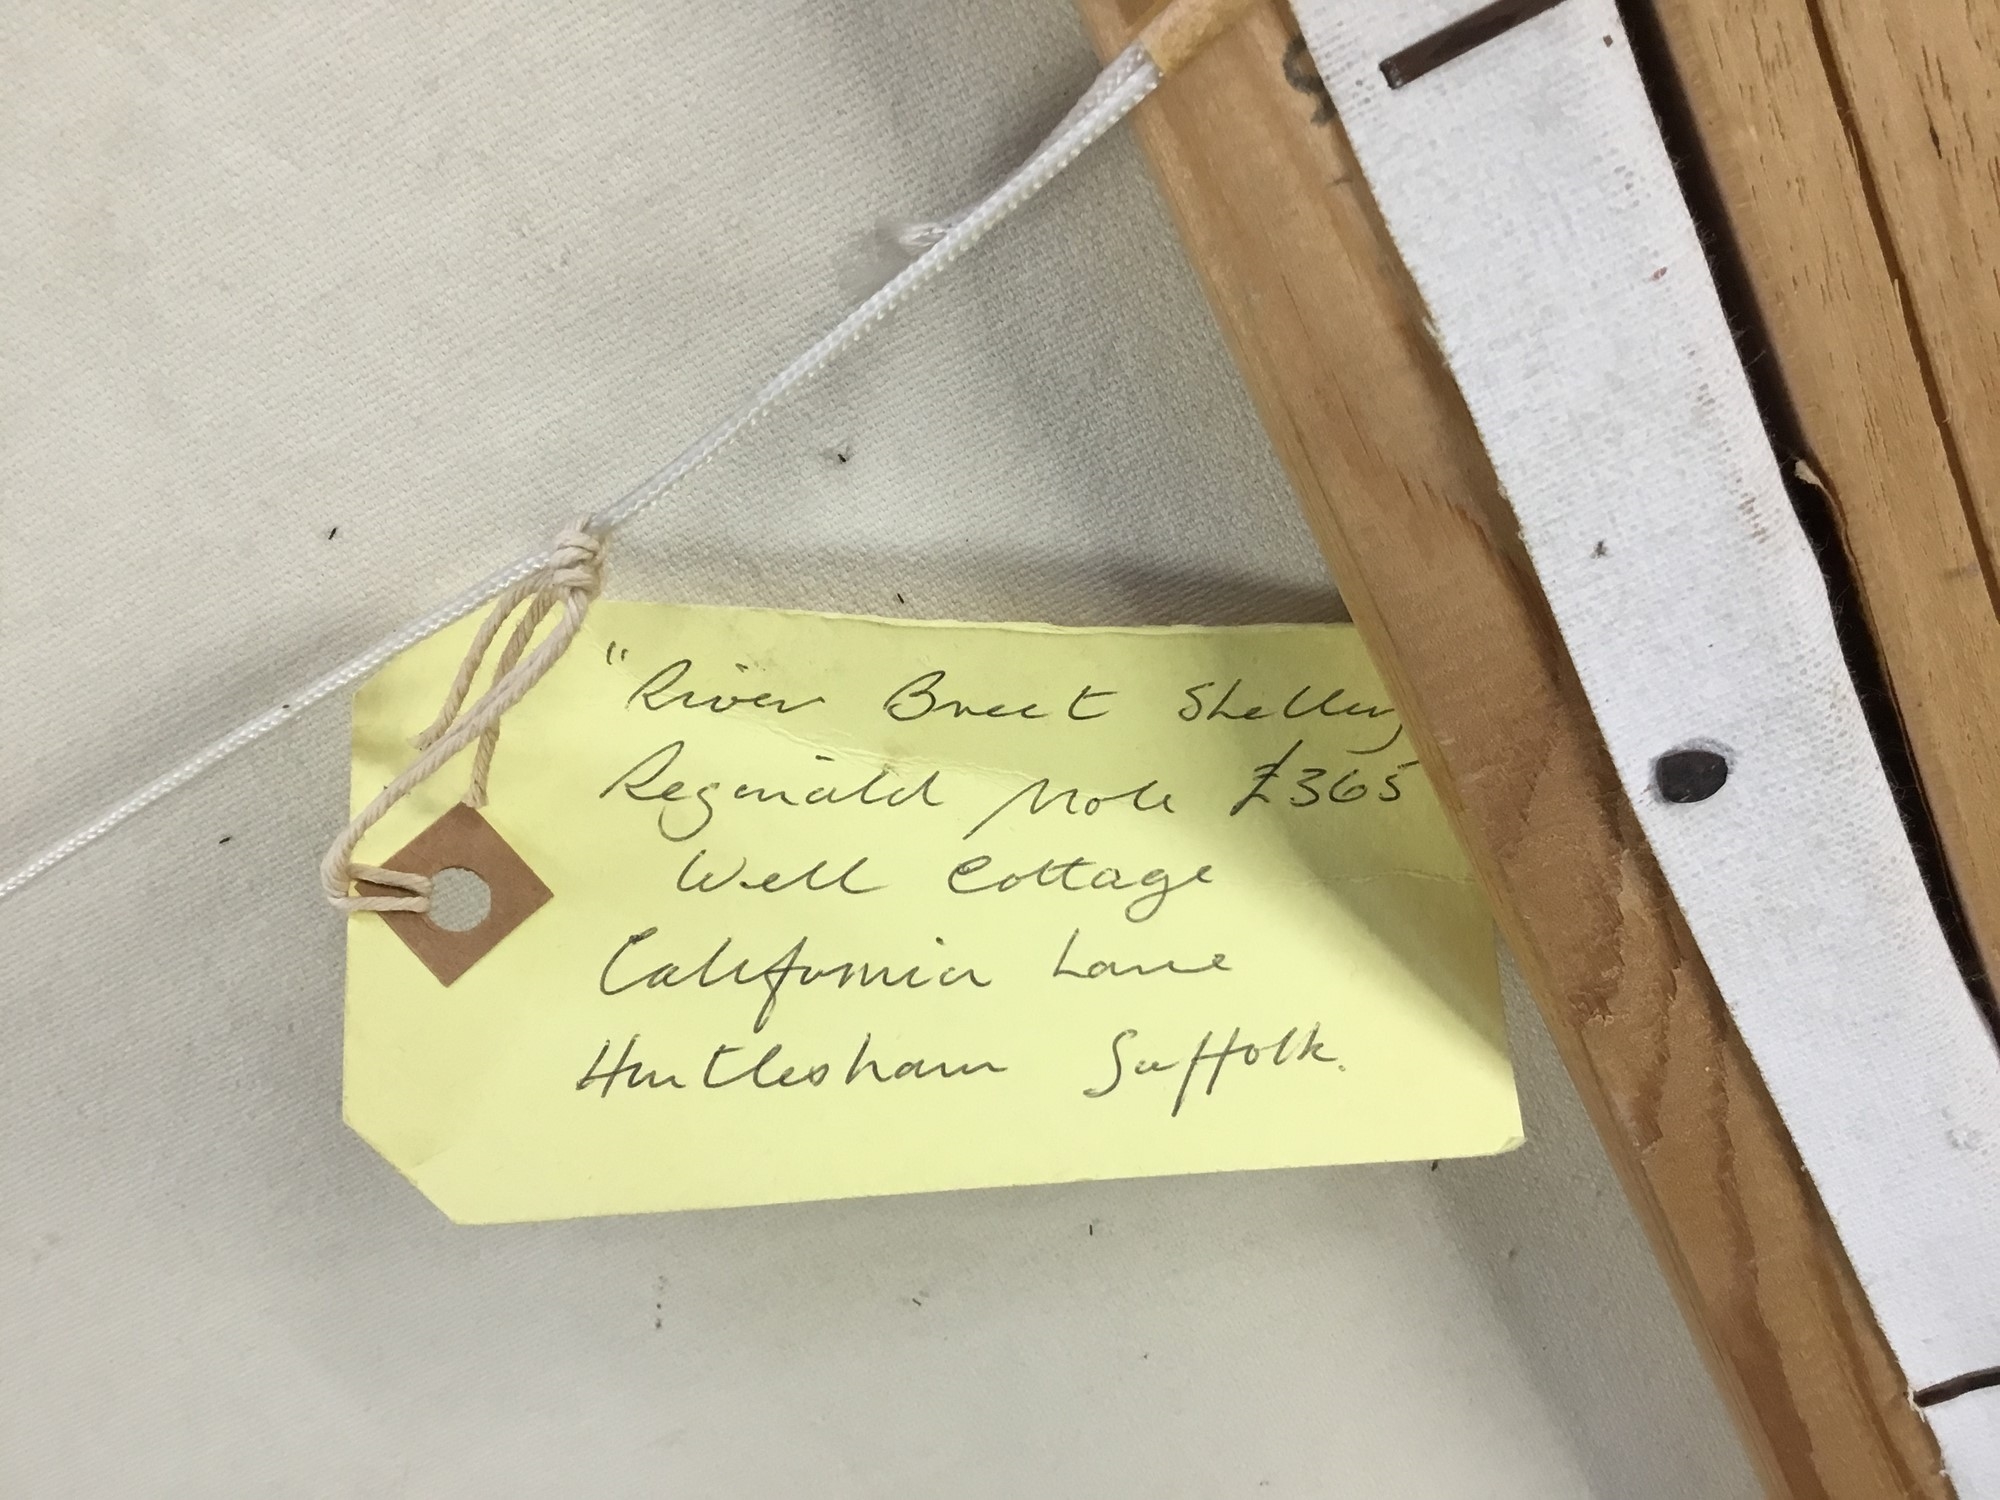 "River Brett Shelley
Reginald Mole £365
Well Cottage
California Lane
Hintlesham Suffolk.